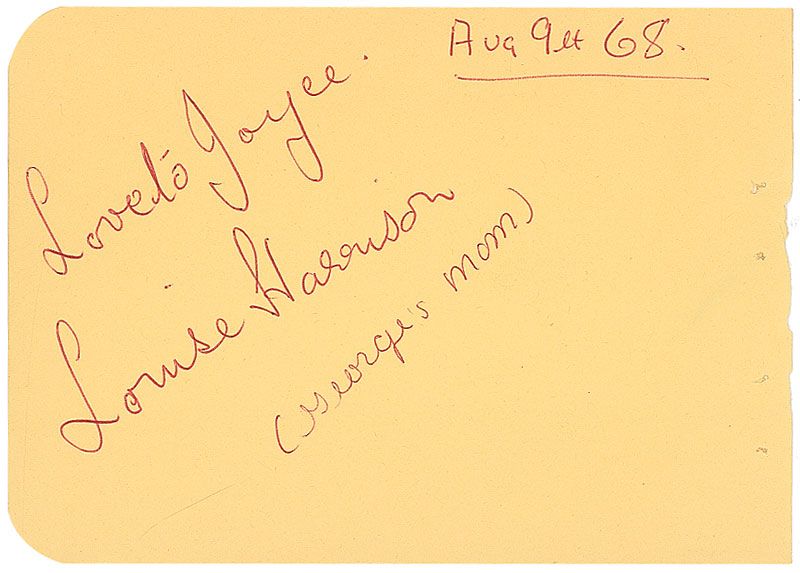 Aug 9th 68.
Love to Joyce.
Louise Harrison
(George's mom)